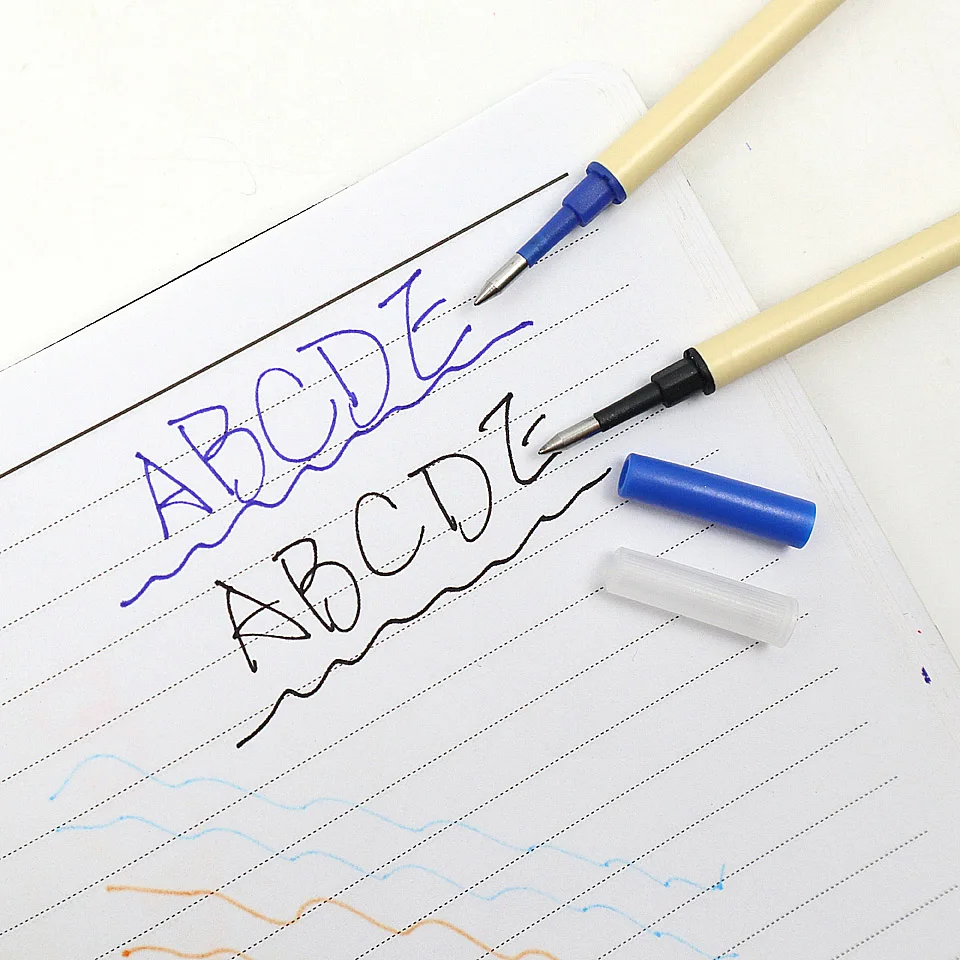 ABCDE
ABCDE